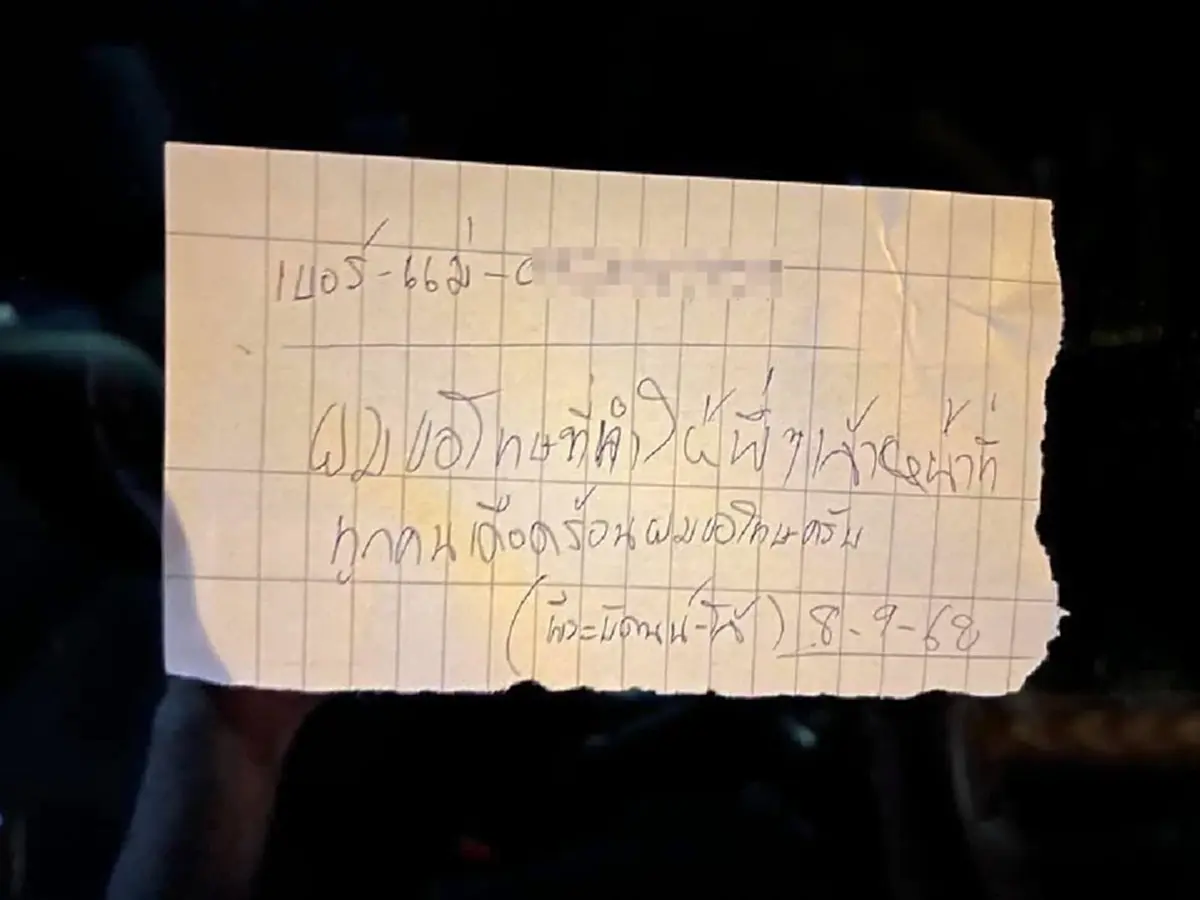 เบอร์-แม่-0
ผมขอโทษที่ทำให้พี่ๆเจ้าหน้าที่
ทุกคนเดือดร้อนผมขอโทษครับ
8-9-68